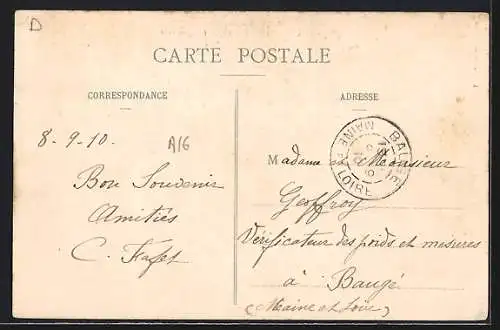 D
CARTE POSTALE
CORRESPONDANCE
ADRESSE
8-9-10.
A16
Bon Souvenir
Amitiés
C.
MAINE ET LOIRE
Madame et Monsieur
Geoffroy
Vérificateur des poids et mesures
à Baugé
(Maine et Loire)